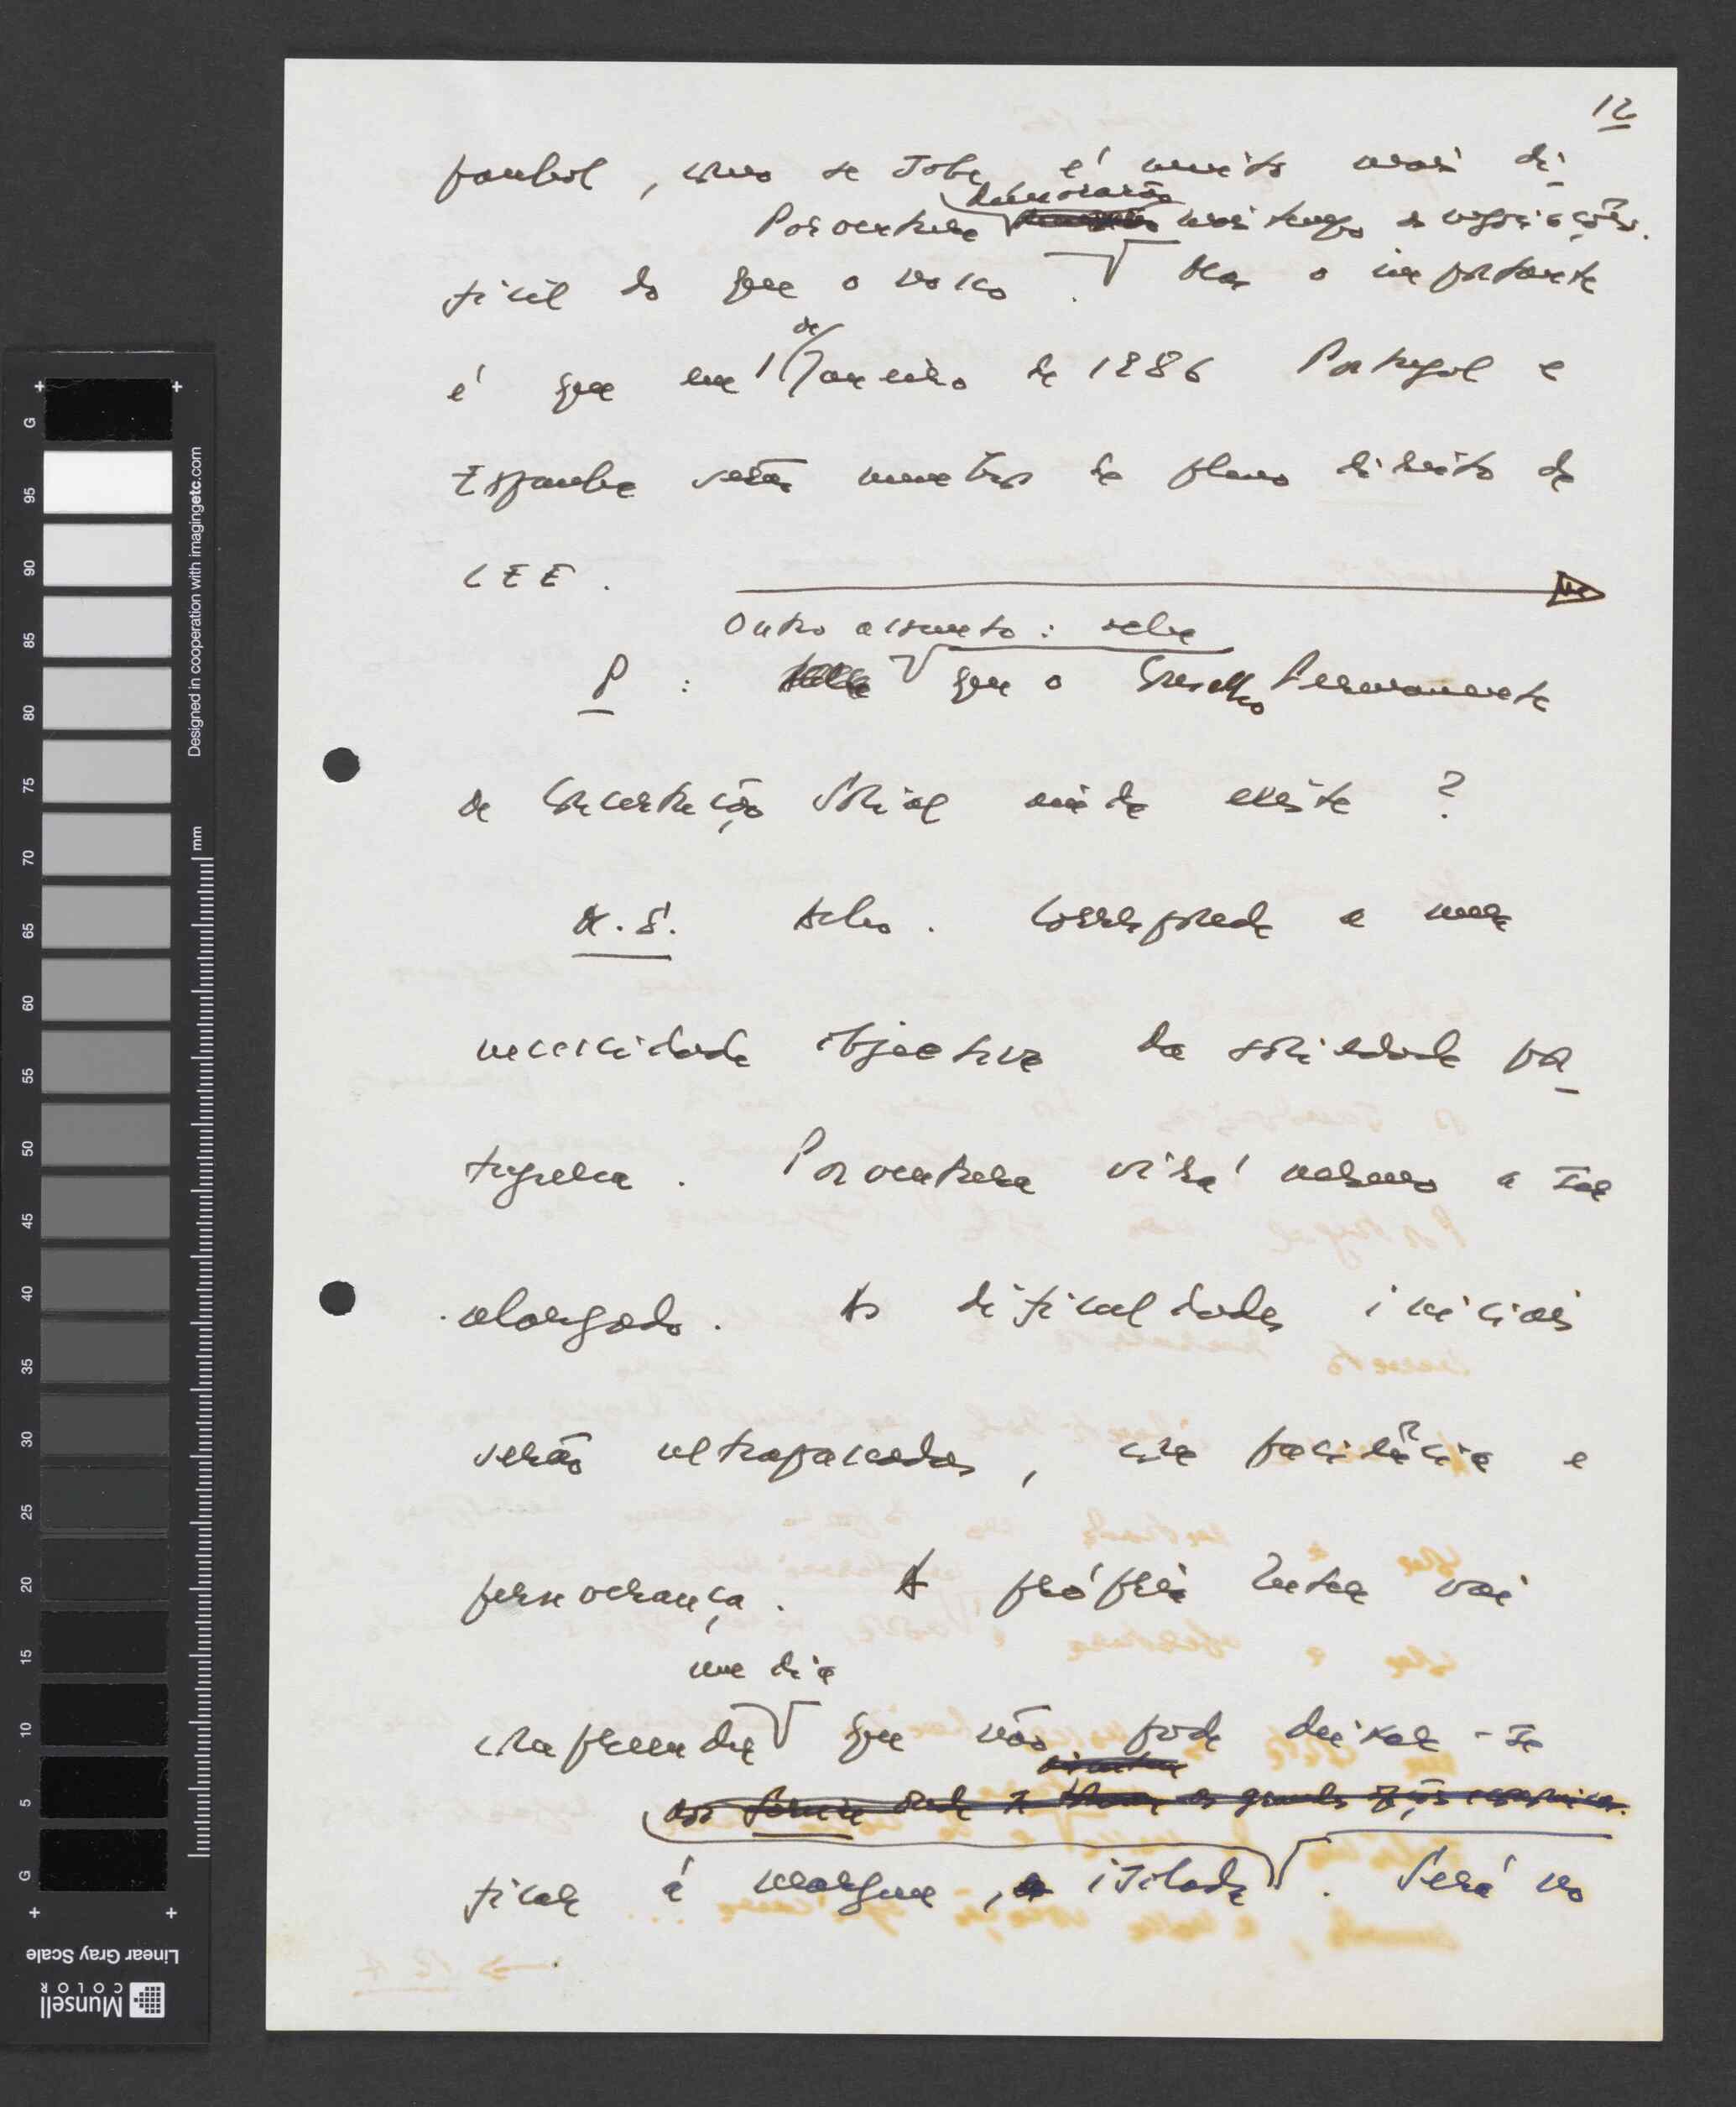 12
panhol, como se sabe, é muito mais di-
demorarão
Porventura mais tempo as negociações.
ficil do que o nosso. Mas o importante
de
é que em 1 Janeiro de 1986 Portugal e
Espanha serão membros de pleno direito da
CEE.
Outro assunto: acha
P: que o Conselho Permanente
de Concertação Social ainda existe?
M.S. Acho. Corresponde a uma
necessidade objectiva da sociedade por-
tuguesa. Porventura virá mesmo a ser
alargado. As dificuldades iniciais
serão ultrapassadas, com paciência e
perseverança. A própria Inter vai
um dia
compreender que não pode deixar-se
ficar à margem, isolada. Será no
G 95 90 85 80 75 70 65 60 55 50 45 40 35 30 25 20 15 10 5 G
Designed in cooperation with imagingetc.com
mm
Linear Gray Scale
Munsell
COLOR